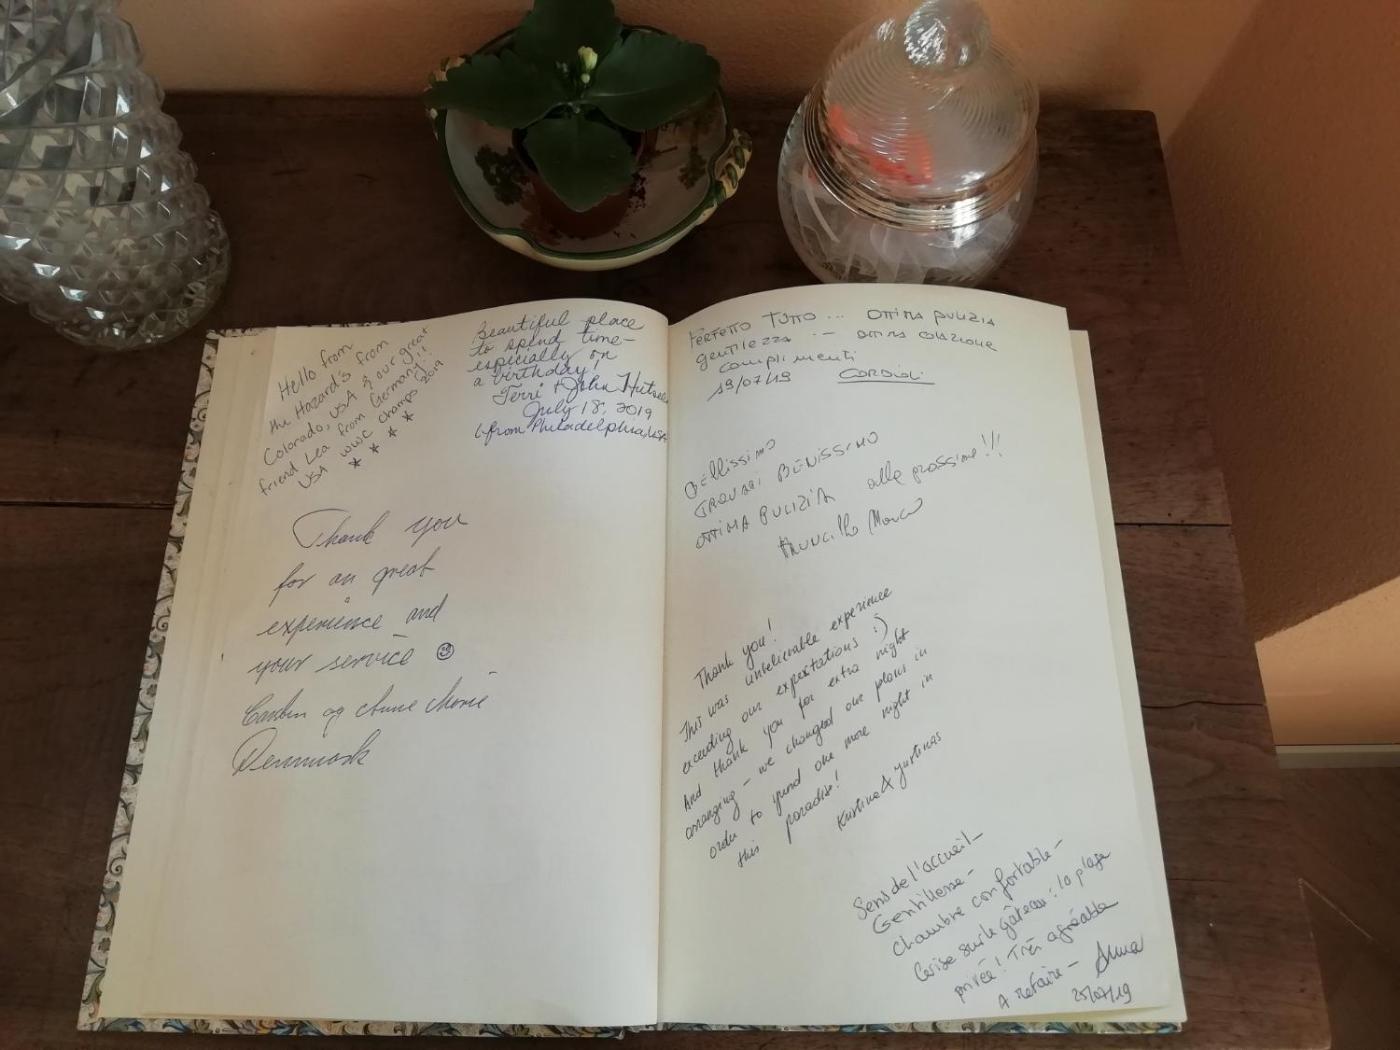 Hello from
the Hazard's from
Colorado, USA & our great
friend Lea from Germany!!
USA WWC champs 2019
Beautiful place
to spend time-
especially on
a birthday!
Terri + John
July 18, 2019
from Philadelphia, USA
Thank you
for an great
experience and
your service
og
Denmark
PERFETTO TUTTO ... OTTIMA PULIZIA
gentilezza ... OTTIMA COLAZIONE
complimenti
19/07/19
BELLISSIMO
BENISSIMO
OTTIMA PULIZIA alla prossima!!!
Thank you!
This was unbelievable experience
exceeding our expectations :)
And thank you for extra night
arranging - we changed our plans in
order to spend one more night in
this paradise!
Kristina & Justinas
Sens de l'accueil-
Gentillesse-
chambre confortable-
Cerise sur le gâteau: la plage
privée! Très agréable
A refaire- Anna
25/07/19